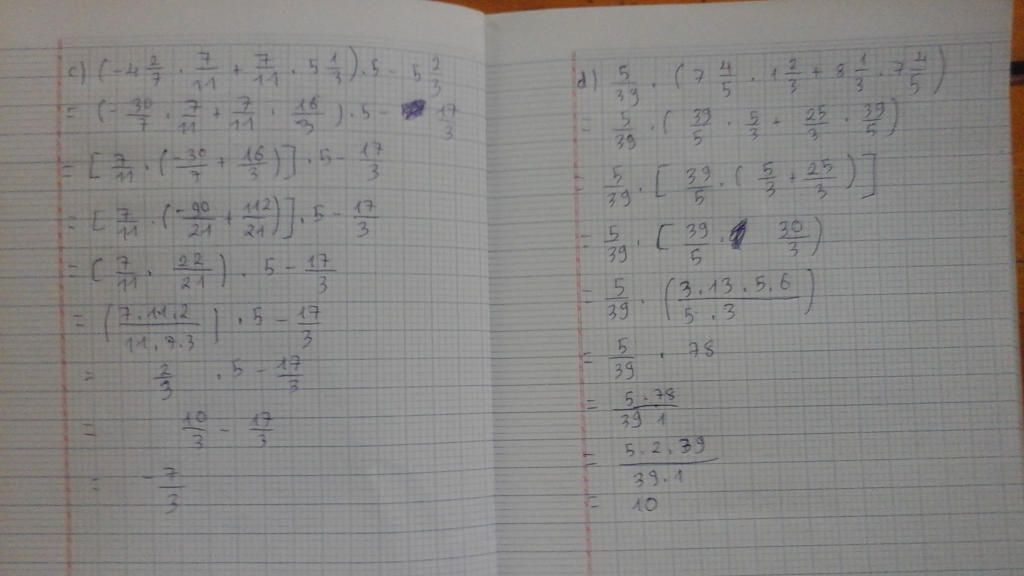 c) (-4 2/7 . 7/11 + 7/11 . 5 1/3) . 5 - 5 2/3
= (-30/7 . 7/11 + 7/11 . 16/3) . 5 - 17/3
= [7/11 . (-30/7 + 16/3)] . 5 - 17/3
= [7/11 . (-90/21 + 112/21)] . 5 - 17/3
= (7/11 . 22/21) . 5 - 17/3
= (7.11.2/11.7.3) . 5 - 17/3
= 2/3 . 5 - 17/3
= 10/3 - 17/3
= -7/3
d) 5/39 . (7 4/5 . 1 2/3 + 8 1/3 . 7 4/5)
= 5/39 . (39/5 . 5/3 + 25/3 . 39/5)
= 5/39 . [39/5 . (5/3 + 25/3)]
= 5/39 . [39/5 . 30/3)
= 5/39 . (3.13.5.6/5.3)
= 5/39 . 78
= 5.78/39 1
= 5.2.39/39.1
= 10